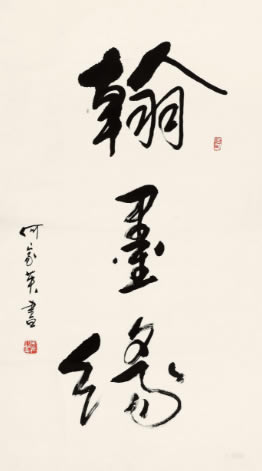 翰墨缘
何家英书